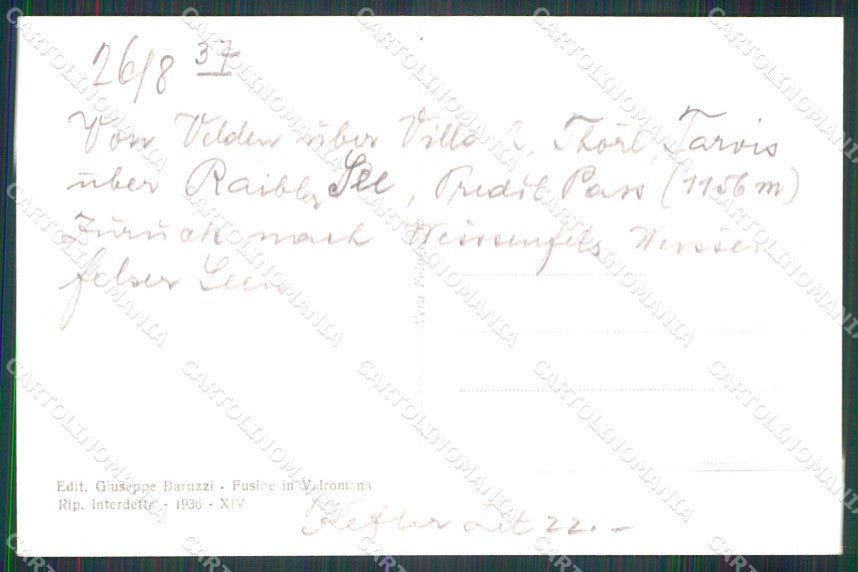 26/8 37
Von Velden über Villach, Thörl, Tarvis
über Raibler See, Predil Pass (1156 m)
Zurück nach Weissenfels, Weissen
felser Seen
Vera Fotografia
Edit. Giuseppe Baruzzi - Fusine in Valromana
Rip. interdetta - 1936 - XIV
Lit 22.-
CARTOLINOMANIA